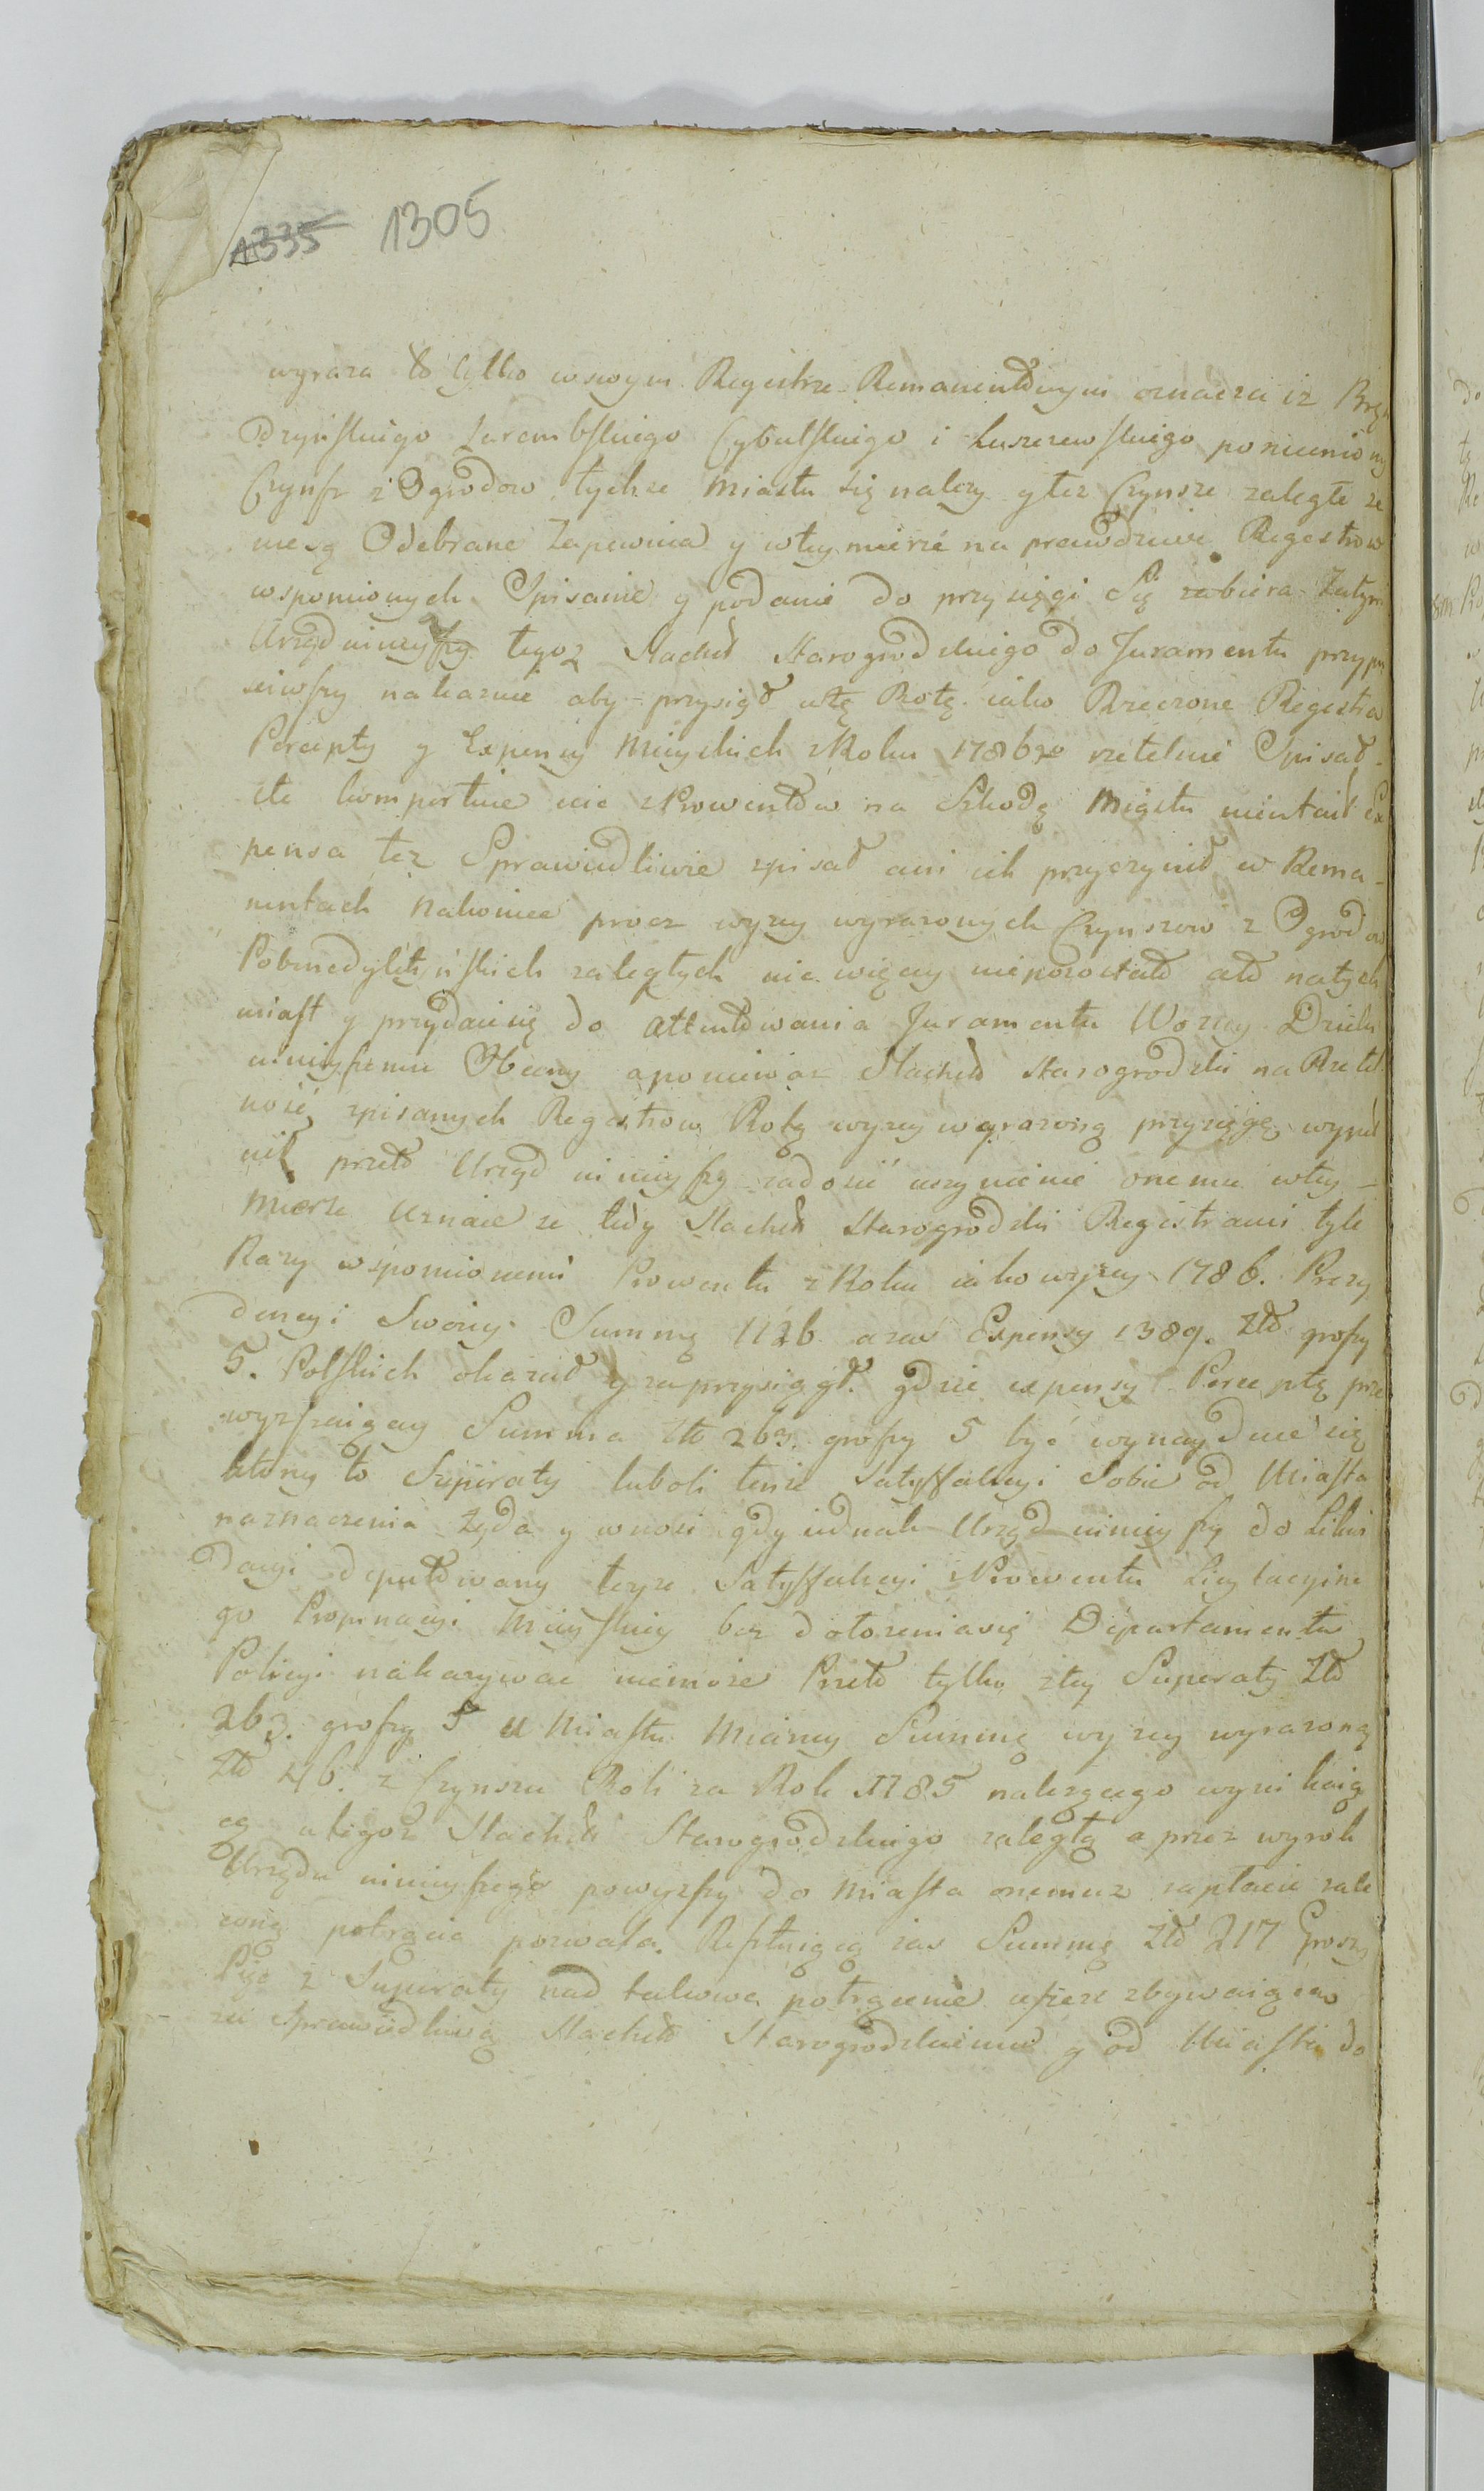 1335 1305
wyraza to tylko wswym Regestrze Remanentowym oznacza iz Brzę
dzyńskiego Zarembskiego Cybulskiego i Luszczewskiego ponieniony
Czynsz z Ogrodow tychze Miastu się nalezy y tez Czynsze zaległe ze
niesą Odebrane Zapewnia y wtey mierze na prawdziwe Regestrow
wspomionych Spisanie y podanie do przysięgi Się zabiera Zatym
Urząd ninieyszy tegoz Szlachet Starogrodzkiego do Juramentu przypu
sciwszy nakazuie aby przysiągł wtę Rotę iako Rzeczone Regestra
Percepty y Expensy Mieyskich z Roku 1786 rzetelnie Spisał
ile komportuie nic z Prowentow na Szkodę Miasta nieutaił Ex
pensa tez Sprawiedliwie zpisał ani ich przyczynił w Rema
nentach Nakoniec procz wyzey wyrazonych Czynszow z Ogrodow
Pobenedyktyńskich zaległych nic więcey niepozostało ato natych
miast y przydaie się do attentowania Juramentu Wozny Dziełu
ninieyszemu Obecny a poniewaz Szlachet Starogrodzki na Rzetel
ność zpisanych Regestrow Rotą wyzey wyrazoną przysięgę wypeł
nił przeto Urząd ninieyszy zadosić uczynienie onemu wtey
mierze Uznaie ze tedy Szlachet Starogrodzki Regestrami tyle
Razy wspomionemi Prowentu z Roku iako wyzey 1786. Prezy
dencyi Swoiey Summę 1126 a zas Expensy 1389. Zło groszy
5. Polskich okazał y zaprzysiągł. gdzie expensy Perceptę prze
wyzszaiącey Summa Zło 263. groszy 5 być wynayduie się
ktorey to Superaty lubo li tenze Satysfakcyi Sobie od Miasta
naznaczenia Ząda y wnosi gdy iednak Urząd ninieyszy do Likwi
dacyi deputowany teyze Satysfakcyi z Prowentu Licytacyine
go Propinacyi Mieyskiey bez dołozenia się Departamentu
Policyi nakazywac niemoze Przeto tylko ztey Superaty Zło
263. groszy 5 u Miasta Mianey Summę wyzey wyrazoną
Zło 46. z Czynszu Roli za Rok 1785 nalezącego wynikaią
cą u tegoz Szlachet Starogrodzkiego zaległą a przez wyrok
Urzędu ninieyszego powyzszy do Miasta onemuz zapłacic zale
coną potrącic pozwala. Resztuiącą zas Summę Zło 217 Groszy
Pięc z Superaty nad takowe potrącenie ieszcze zbywaiąca
za Sprawiedliwą Szlachet Starogrodzkiemu y od Miasta do